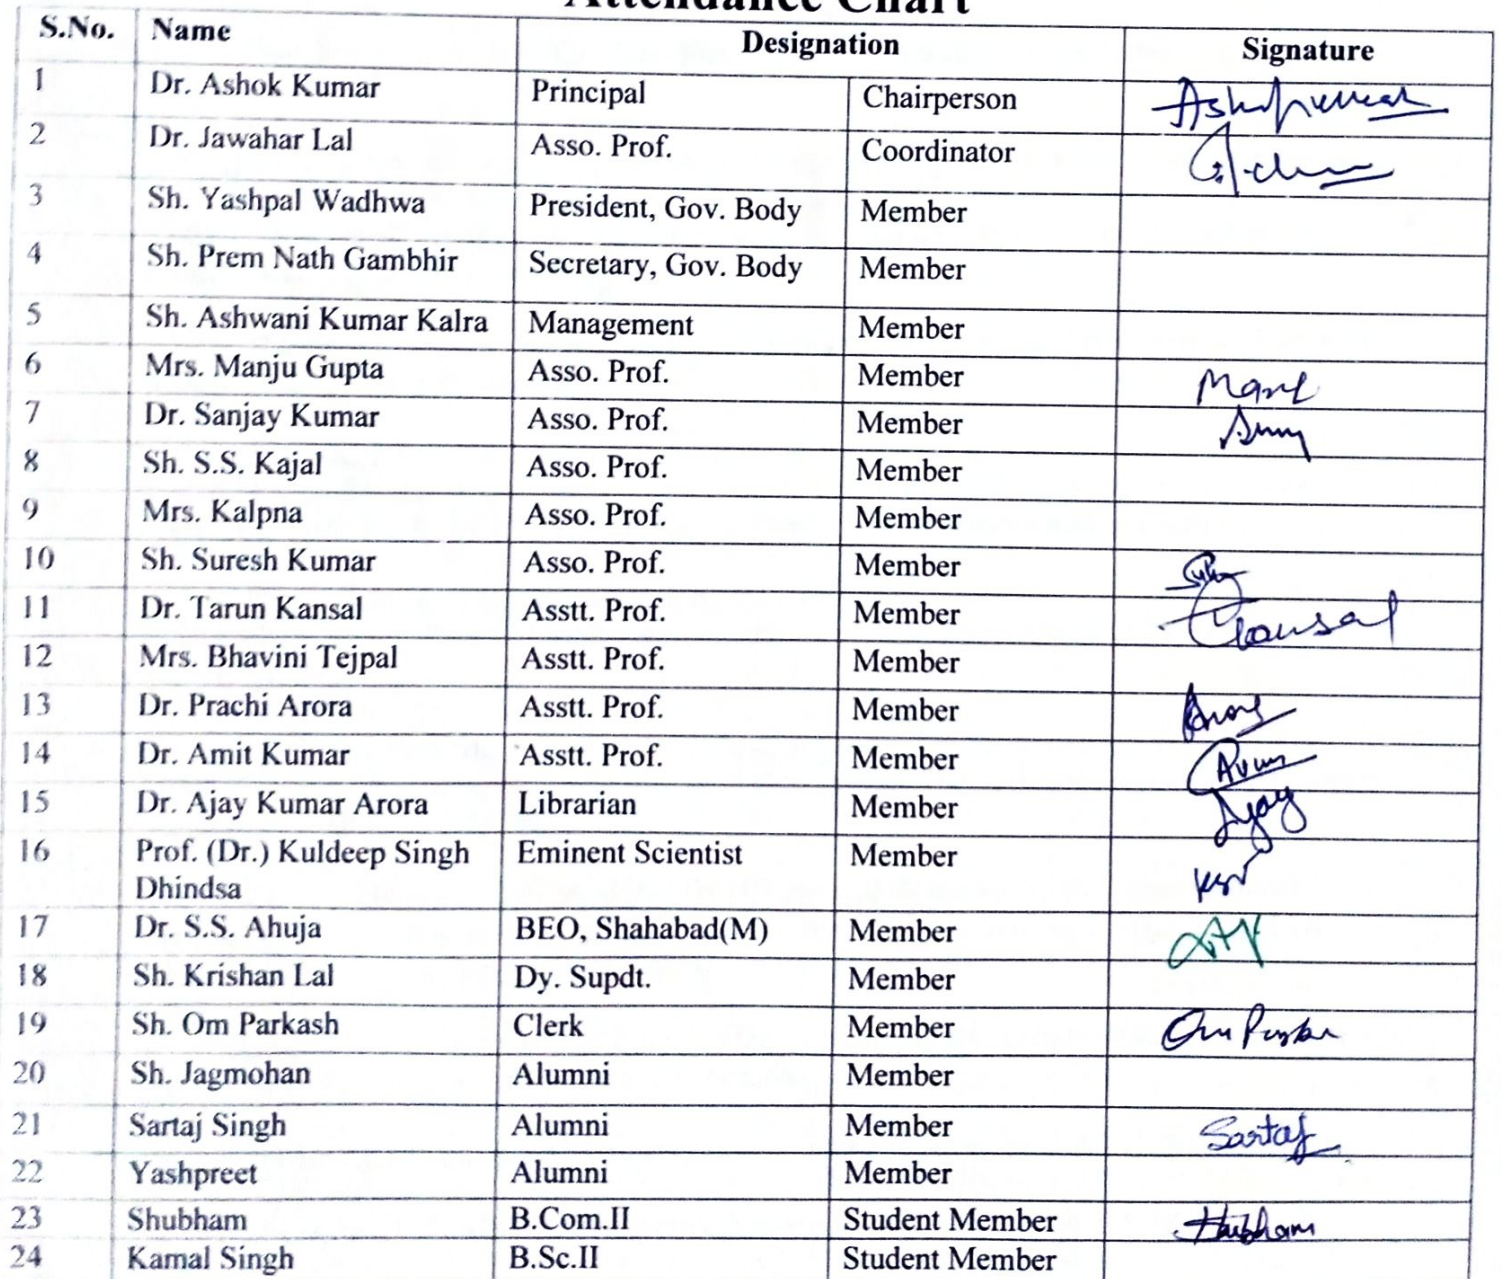 Attendance Chart
S.No. Name Designation Signature
1 Dr. Ashok Kumar Principal Chairperson
2 Dr. Jawahar Lal Asso. Prof. Coordinator
3 Sh. Yashpal Wadhwa President, Gov. Body Member
4 Sh. Prem Nath Gambhir Secretary, Gov. Body Member
5 Sh. Ashwani Kumar Kalra Management Member
6 Mrs. Manju Gupta Asso. Prof. Member
7 Dr. Sanjay Kumar Asso. Prof. Member
8 Sh. S.S. Kajal Asso. Prof. Member
9 Mrs. Kalpna Asso. Prof. Member
10 Sh. Suresh Kumar Asso. Prof. Member
11 Dr. Tarun Kansal Asstt. Prof. Member
12 Mrs. Bhavini Tejpal Asstt. Prof. Member
13 Dr. Prachi Arora Asstt. Prof. Member
14 Dr. Amit Kumar Asstt. Prof. Member
15 Dr. Ajay Kumar Arora Librarian Member Ajay
16 Prof. (Dr.) Kuldeep Singh Eminent Scientist Member
Dhindsa
17 Dr. S.S. Ahuja BEO, Shahabad(M) Member
18 Sh. Krishan Lal Dy. Supdt. Member
19 Sh. Om Parkash Clerk Member
20 Sh. Jagmohan Alumni Member
21 Sartaj Singh Alumni Member Sartaj
22 Yashpreet Alumni Member
23 Shubham B.Com.II Student Member Shubham
24 Kamal Singh B.Sc.II Student Member